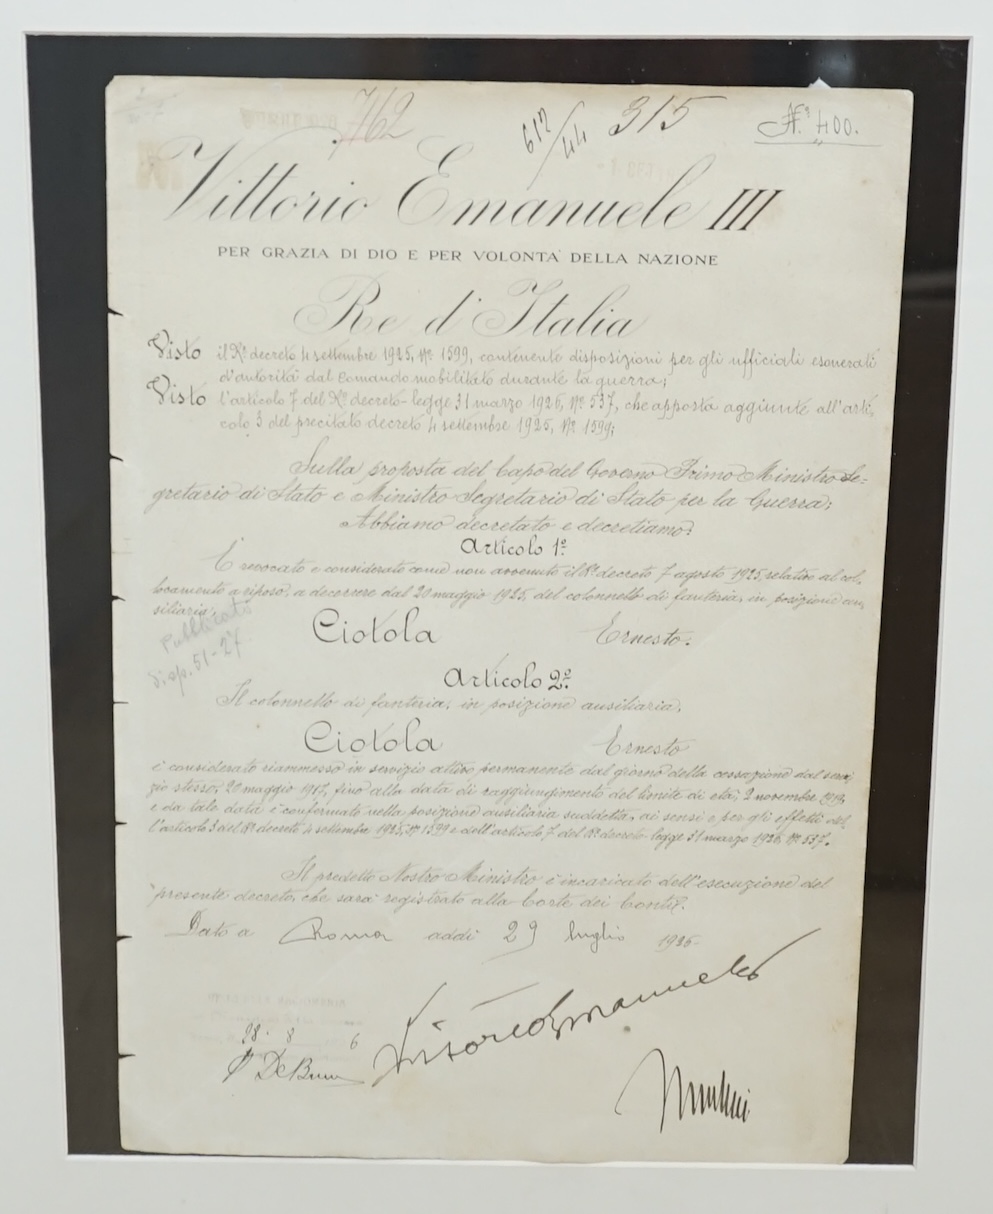 762
612/44
315
N.° 400.
Vittorio Emanuele III
PER GRAZIA DI DIO E PER VOLONTA' DELLA NAZIONE
Re d'Italia
Visto il R.° decreto 4 settembre 1925, N.° 1599, contenente disposizioni per gli ufficiali esonerati
d'autorità dal comando mobilitato durante la guerra;
Visto l'articolo 7 del R.° decreto-legge 31 marzo 1926, N.° 537, che apporta aggiunte all'arti-
colo 3 del precitato decreto 4 settembre 1925, N.° 1599;
Sulla proposta del Capo del Governo Primo Ministro Se=
gretario di Stato e Ministro Segretario di Stato per la Guerra;
Abbiamo decretato e decretiamo:
Articolo 1°.
È revocato e considerato come non avvenuto il R.° decreto 7 agosto 1925, relativo al col-
locamento a riposo, a decorrere dal 20 maggio 1925, del colonnello di fanteria, in posizione au-
siliaria:
Pubblicato
disp. 51-27
Ciotola Ernesto.
Articolo 2°.
Il colonnello di fanteria, in posizione ausiliaria,
Ciotola Ernesto
è considerato riammesso in servizio attivo permanente dal giorno della cessazione dal servi-
zio stesso, 20 maggio 1917, fino alla data di raggiungimento del limite di età, 2 novembre 1919,
e da tale data è confermato nella posizione ausiliaria suddetta, ai sensi e per gli effetti del-
l'articolo 3 del R.° decreto 4 settembre 1925, N.° 1599 e dell'articolo 7 del R.° decreto-legge 31 marzo 1926, N.° 537.
Il predetto Nostro Ministro è incaricato dell'esecuzione del
presente decreto, che sarà registrato alla Corte dei Conti.
Dato a Roma addì 29 luglio 1926
28. 8 6
Vittorio Emanuele
Mussolini